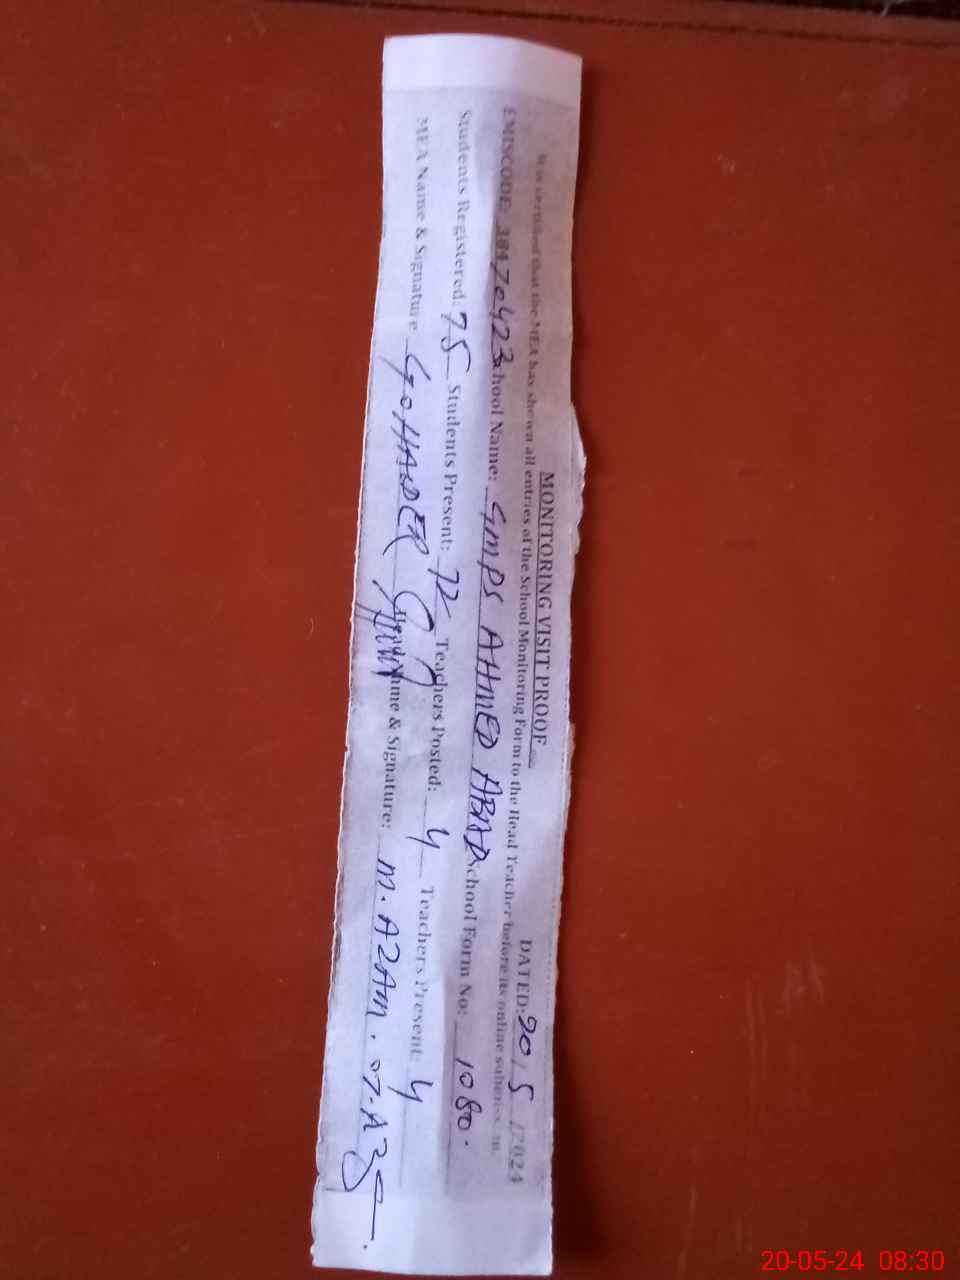 MONITORING VISIT PROOF
DATED: 20/5/2024
It is certified that the MEA has shown all entries of the School Monitoring Form to the Head Teacher before its online
EMISCODE: 70423 School Name: GMPS AHMED ABAD School Form No: 1080.
Students Registered: 75 Students Present: 72 Teachers Posted: 4 Teachers Present: 4
MEA Name & Signature Head Name & Signature: M. AZAM.
20-05-24 08:30